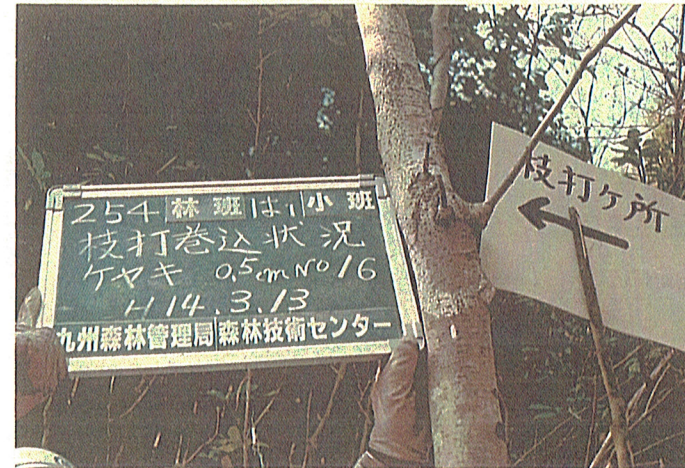 254 林班 は1 小班
枝打巻込状況
ケヤキ 0.5cm No16
H14.3.13
九州森林管理局 森林技術センター
枝打ケ所